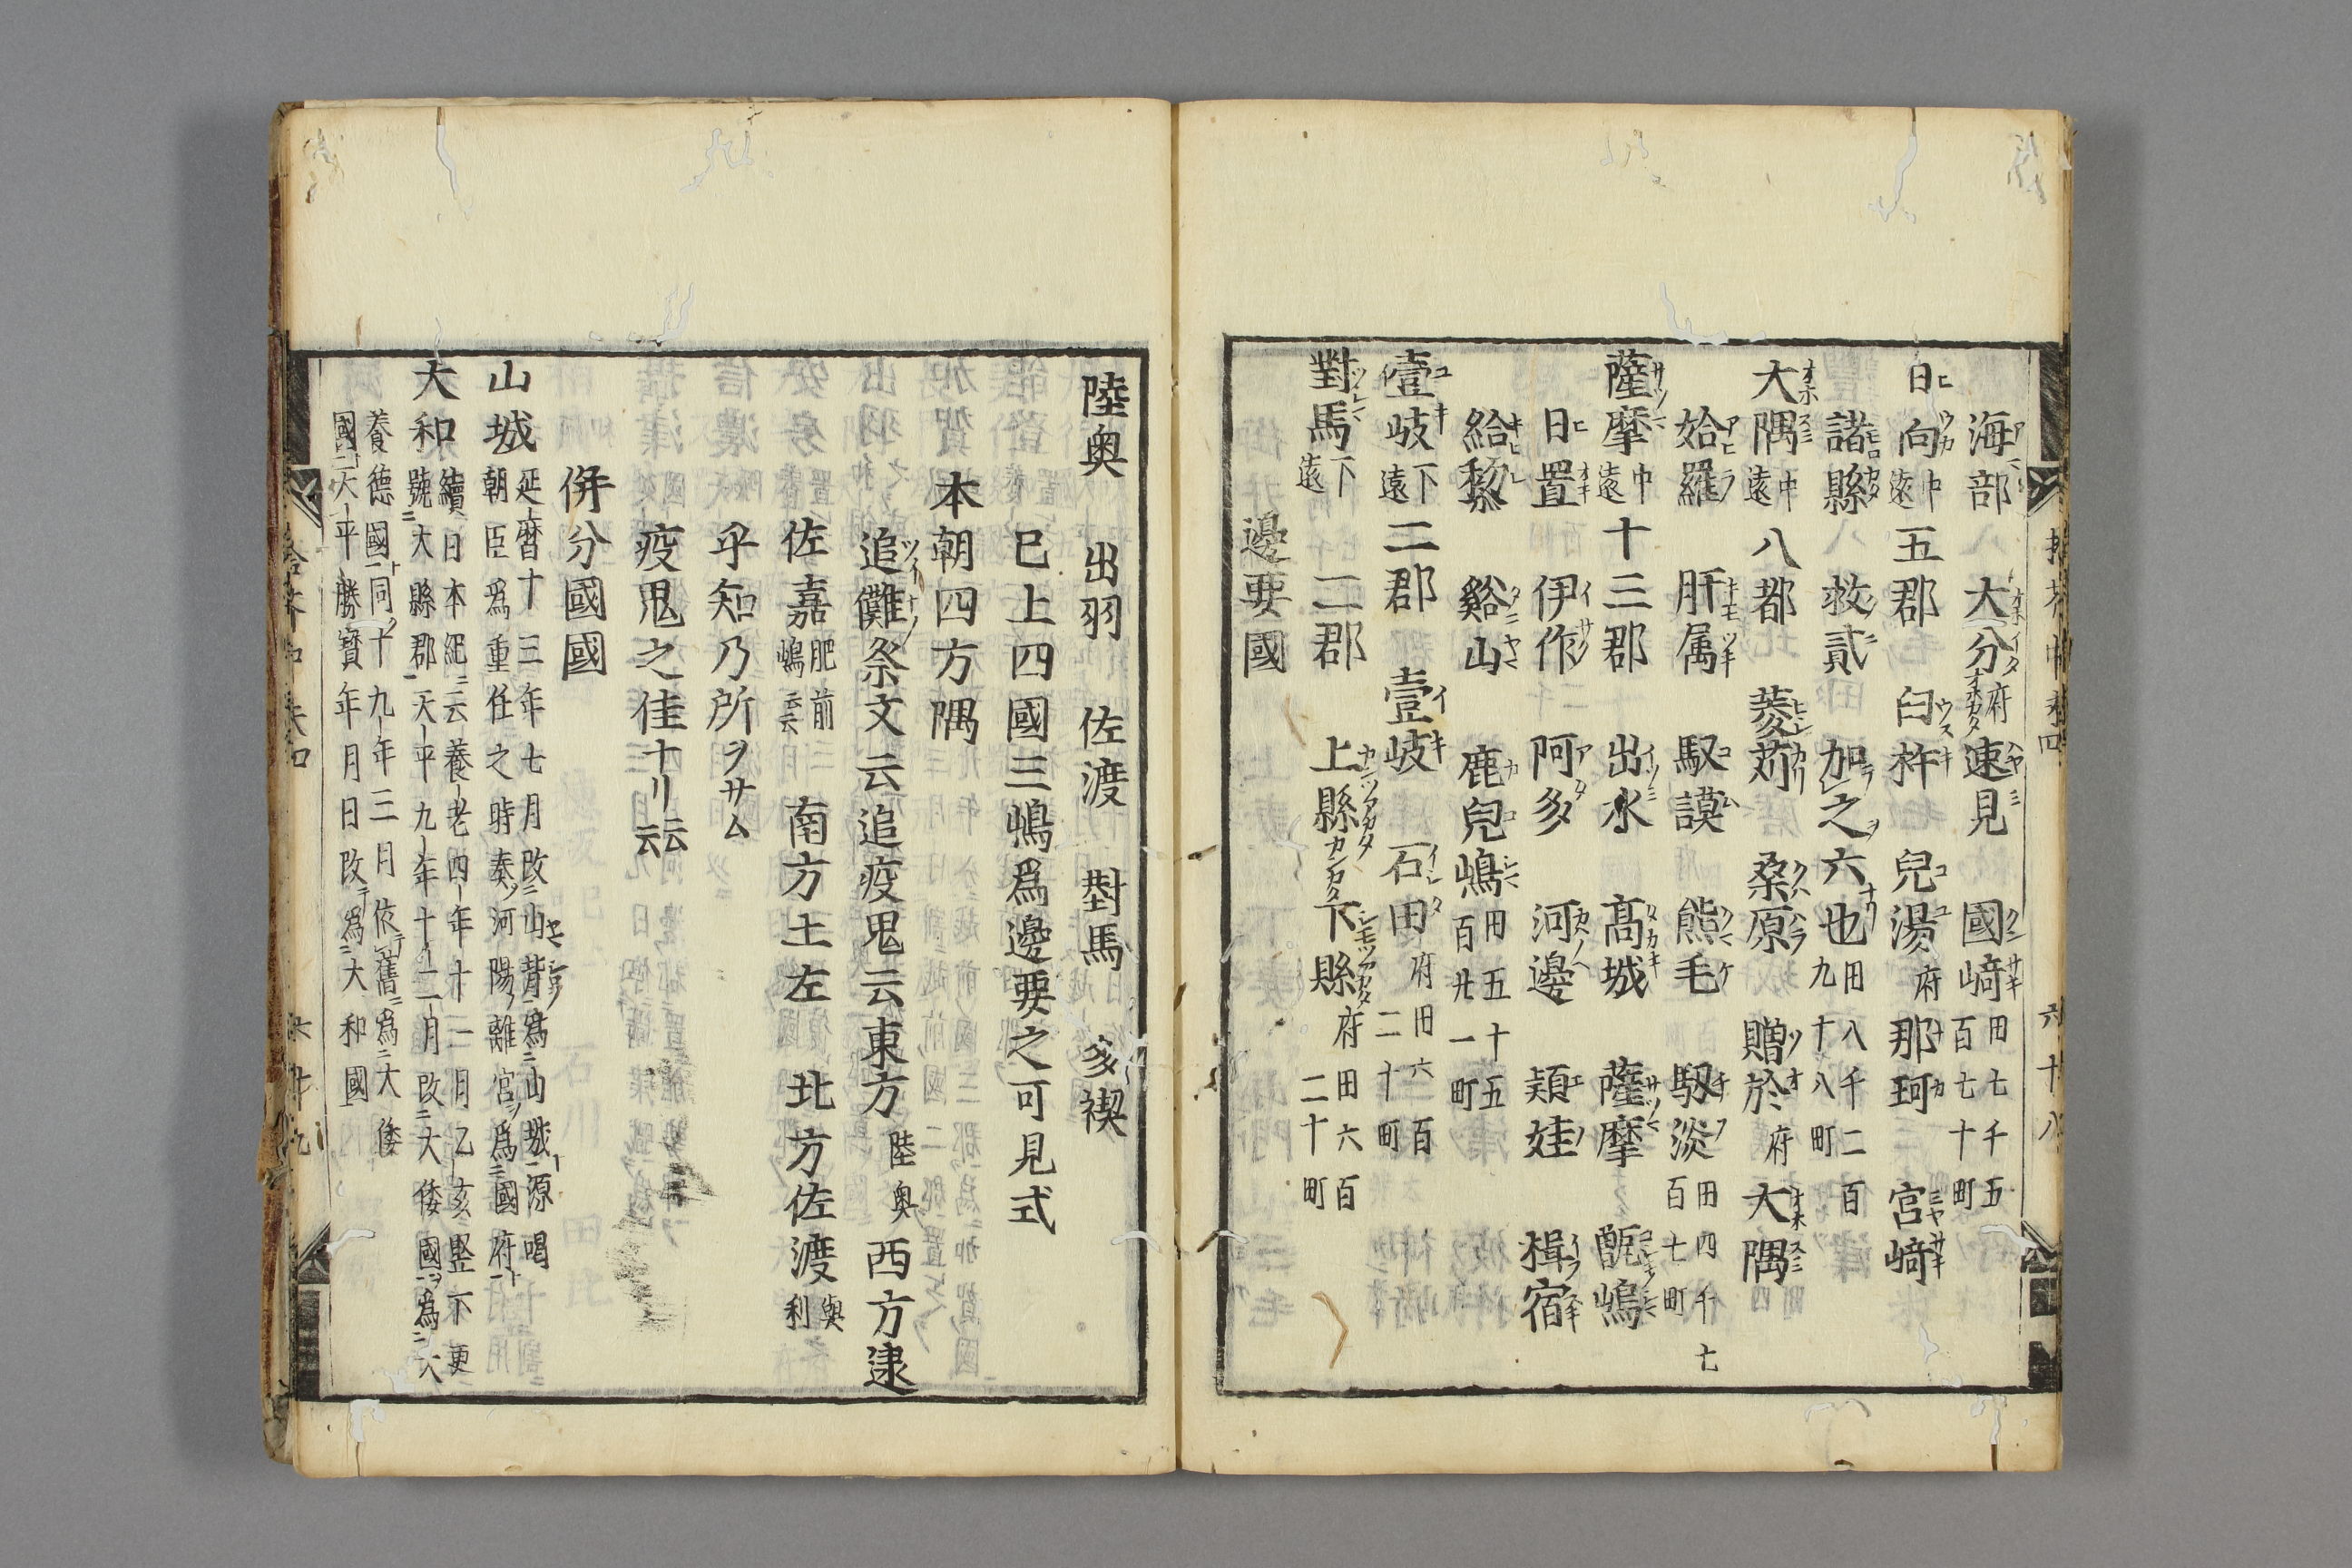 海部 大分府 速見 國﨑田七千五百七十町
日向中遠 五郡 臼杵 兒湯府 那珂 宮﨑
諸縣 救貳 加之六也田八千二百九十八町
大隅中遠 八郡 菱苅 桑原 贈於府 大隅
姶羅 肝属 馭謨 熊毛 馭淡田四千七百七町
薩摩中遠 十三郡 出水 髙城 薩摩 甑嶋
日置 伊作 阿多 河邊 穎娃 揖宿
給黎 谿山 鹿兒嶋田五十五百廿一町
壹岐下遠 二郡 壹岐 石田府田六百二十町
對馬下遠 二郡 上縣 下縣府田六百二十町
邊要國
陸奥 出羽 佐渡 對馬 多褹
已上四國三嶋爲邊要之可見式
本朝四方隅
追儺祭文云追疫鬼云東方陸奥西方逮
佐嘉肥前嶋云云 南方土左 北方佐渡與利
乎知乃所ヲサム
疫鬼之佳十リ云云
併分國國
山城延暦十三年七月改山背爲山城源唱朝臣爲重任之時奏河陽離宮爲國府
大和續日本紀云養老四年十一月乙亥竪下更號大縣郡天平九年十二月改大倭國爲大
養德國同十九年三月依舊爲大倭
國天平勝寶年月日改爲大和國